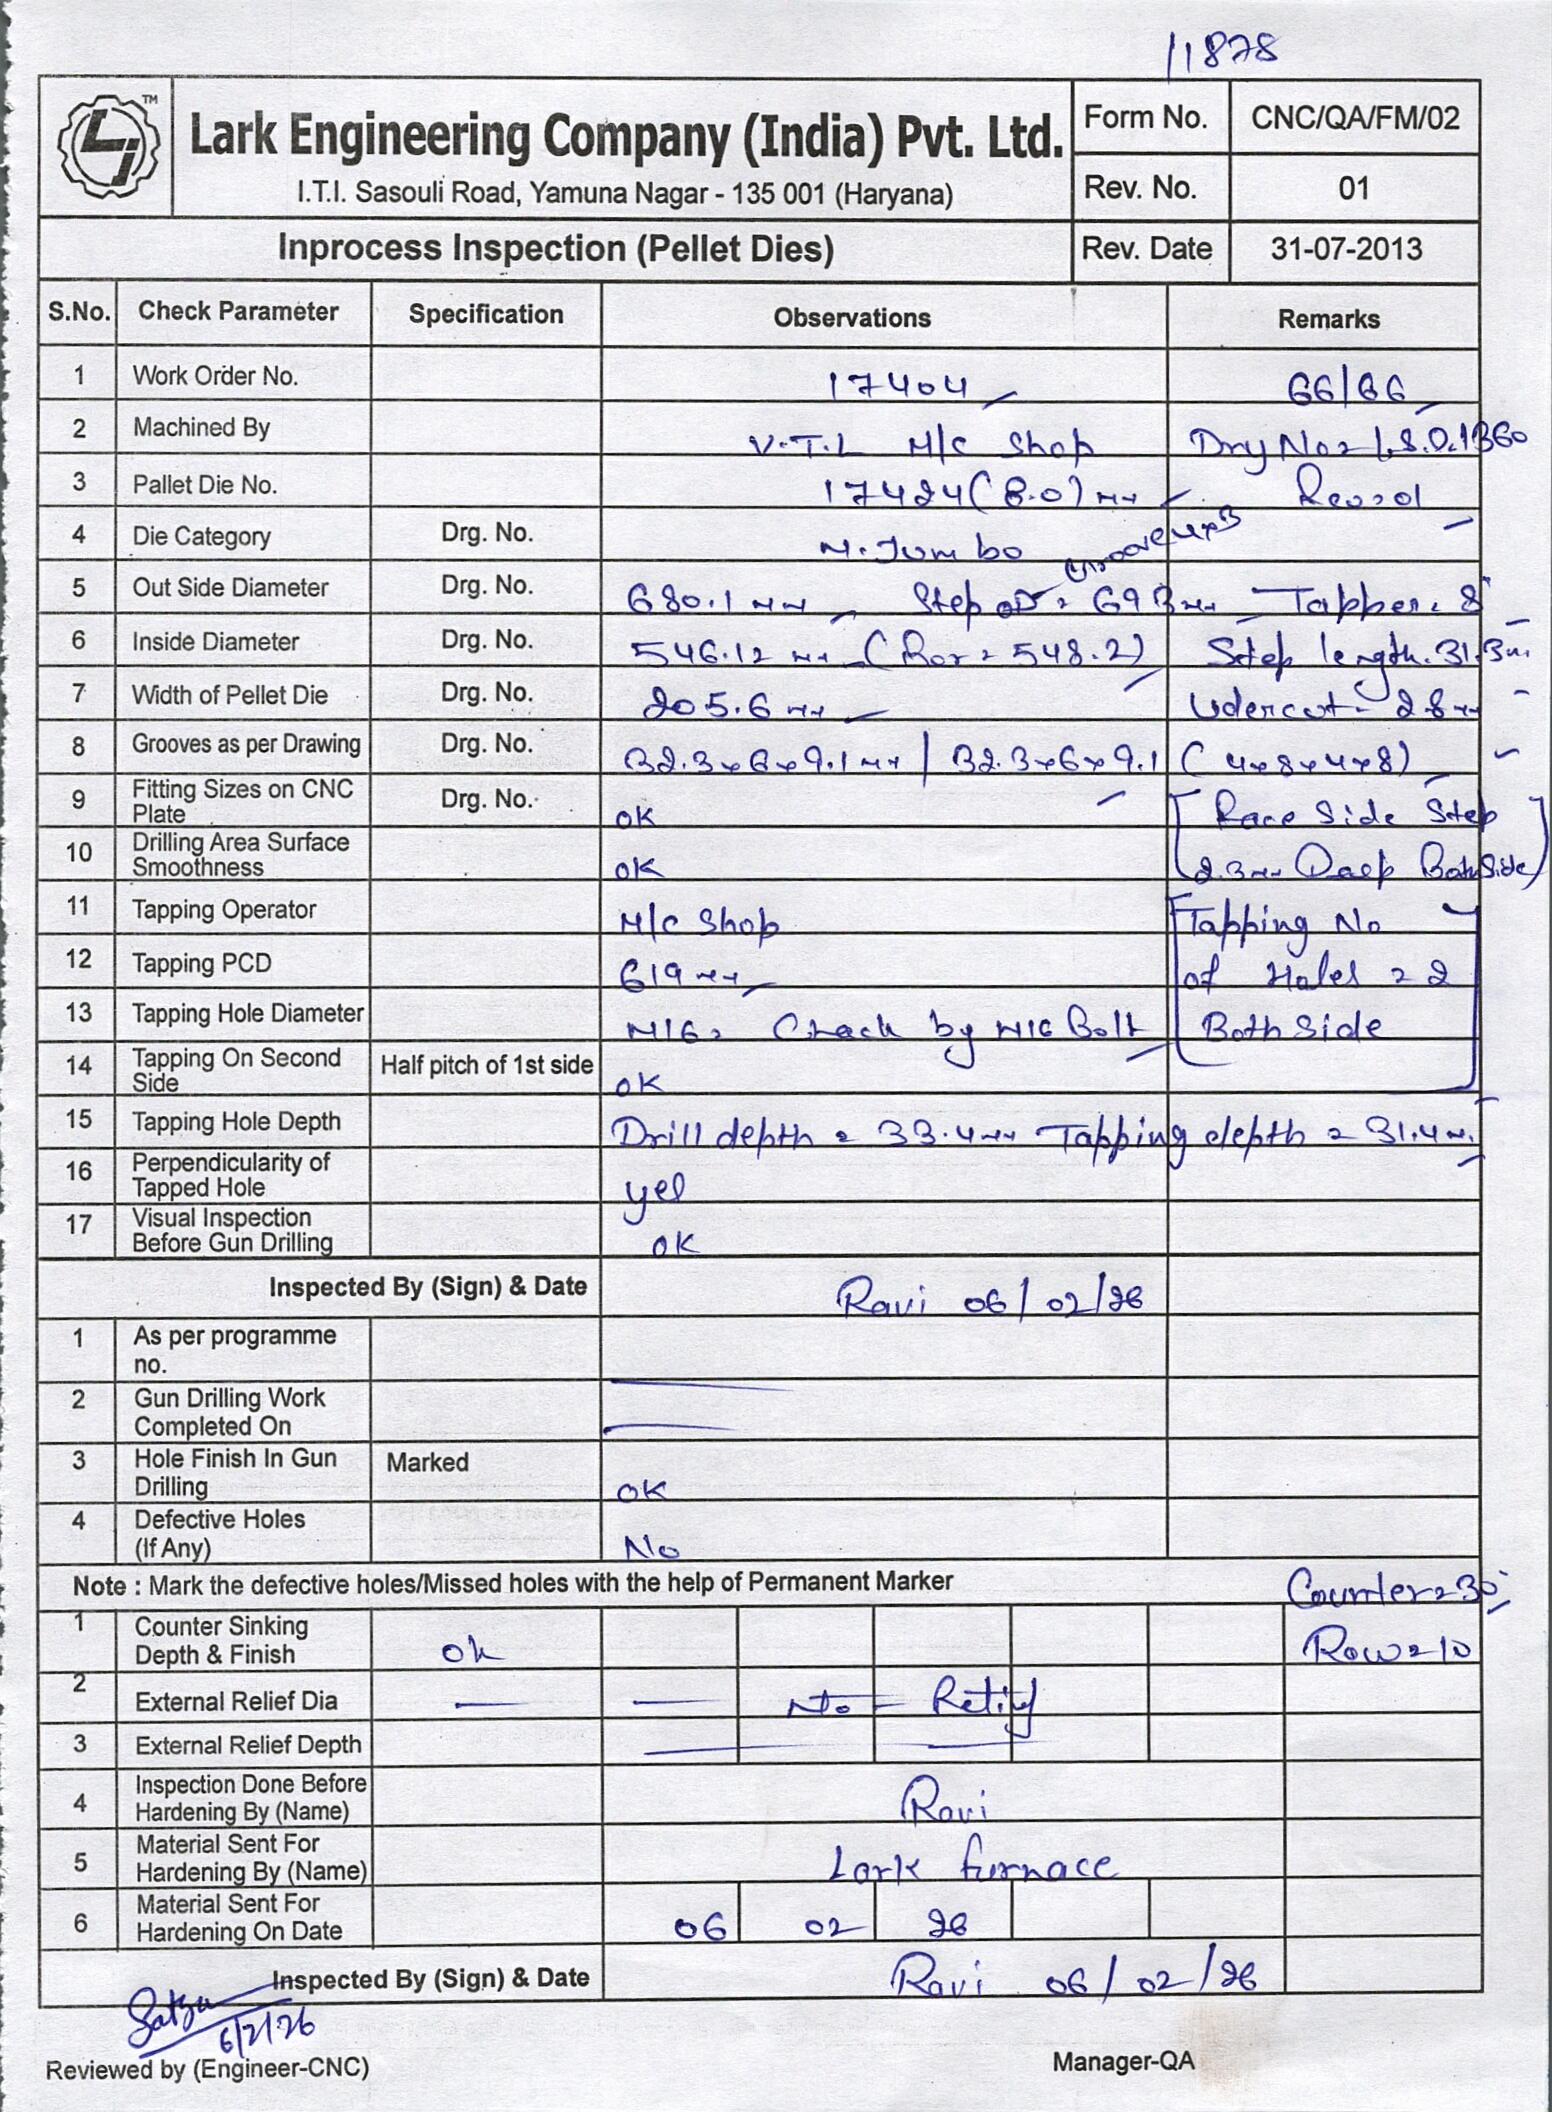 11878
LJ TM
Lark Engineering Company (India) Pvt. Ltd.
I.T.I. Sasouli Road, Yamuna Nagar - 135 001 (Haryana)
Form No. CNC/QA/FM/02
Rev. No. 01
Inprocess Inspection (Pellet Dies) Rev. Date 31-07-2013
S.No. Check Parameter Specification Observations Remarks
1 Work Order No. 17404 66/66
2 Machined By V.T.L M/C Shop
3 Pallet Die No. 17424(8.0) mm
4 Die Category Drg. No. M. Jumbo
5 Out Side Diameter Drg. No. 680.1 mm Step OD = 693 mm Tapper = 8°
6 Inside Diameter Drg. No. 546.12 mm (Bor = 548.2) Step length. 31.3m
7 Width of Pellet Die Drg. No. 205.6 mm Udercut = 28 mm
8 Grooves as per Drawing Drg. No. 32.3x6x9.1 mm | 32.3x6x9.1 (4x8x4x8)
9 Fitting Sizes on CNC Plate Drg. No. OK [Race Side Step
10 Drilling Area Surface Smoothness OK 2.3mm Deep Both Side]
11 Tapping Operator M/C Shop [Tapping No
12 Tapping PCD 619 mm of Holes = 2
13 Tapping Hole Diameter M16 = Chack by M16 Bolt Both Side]
14 Tapping On Second Side Half pitch of 1st side OK
15 Tapping Hole Depth Drill depth = 33.4mm Tapping depth = 31.4m.
16 Perpendicularity of Tapped Hole yes
17 Visual Inspection Before Gun Drilling OK
Inspected By (Sign) & Date Ravi 06/02/26
1 As per programme no.
2 Gun Drilling Work Completed On
3 Hole Finish In Gun Drilling Marked OK
4 Defective Holes (If Any) No
Note : Mark the defective holes/Missed holes with the help of Permanent Marker Counter = 30°
1 Counter Sinking Depth & Finish Ok Row = 10
2 External Relief Dia — — No —
3 External Relief Depth
4 Inspection Done Before Hardening By (Name) Ravi
5 Material Sent For Hardening By (Name) Lark furnace
6 Material Sent For Hardening On Date 06 02 26
Inspected By (Sign) & Date Ravi 06/02/26
6/2/26
Reviewed by (Engineer-CNC) Manager-QA